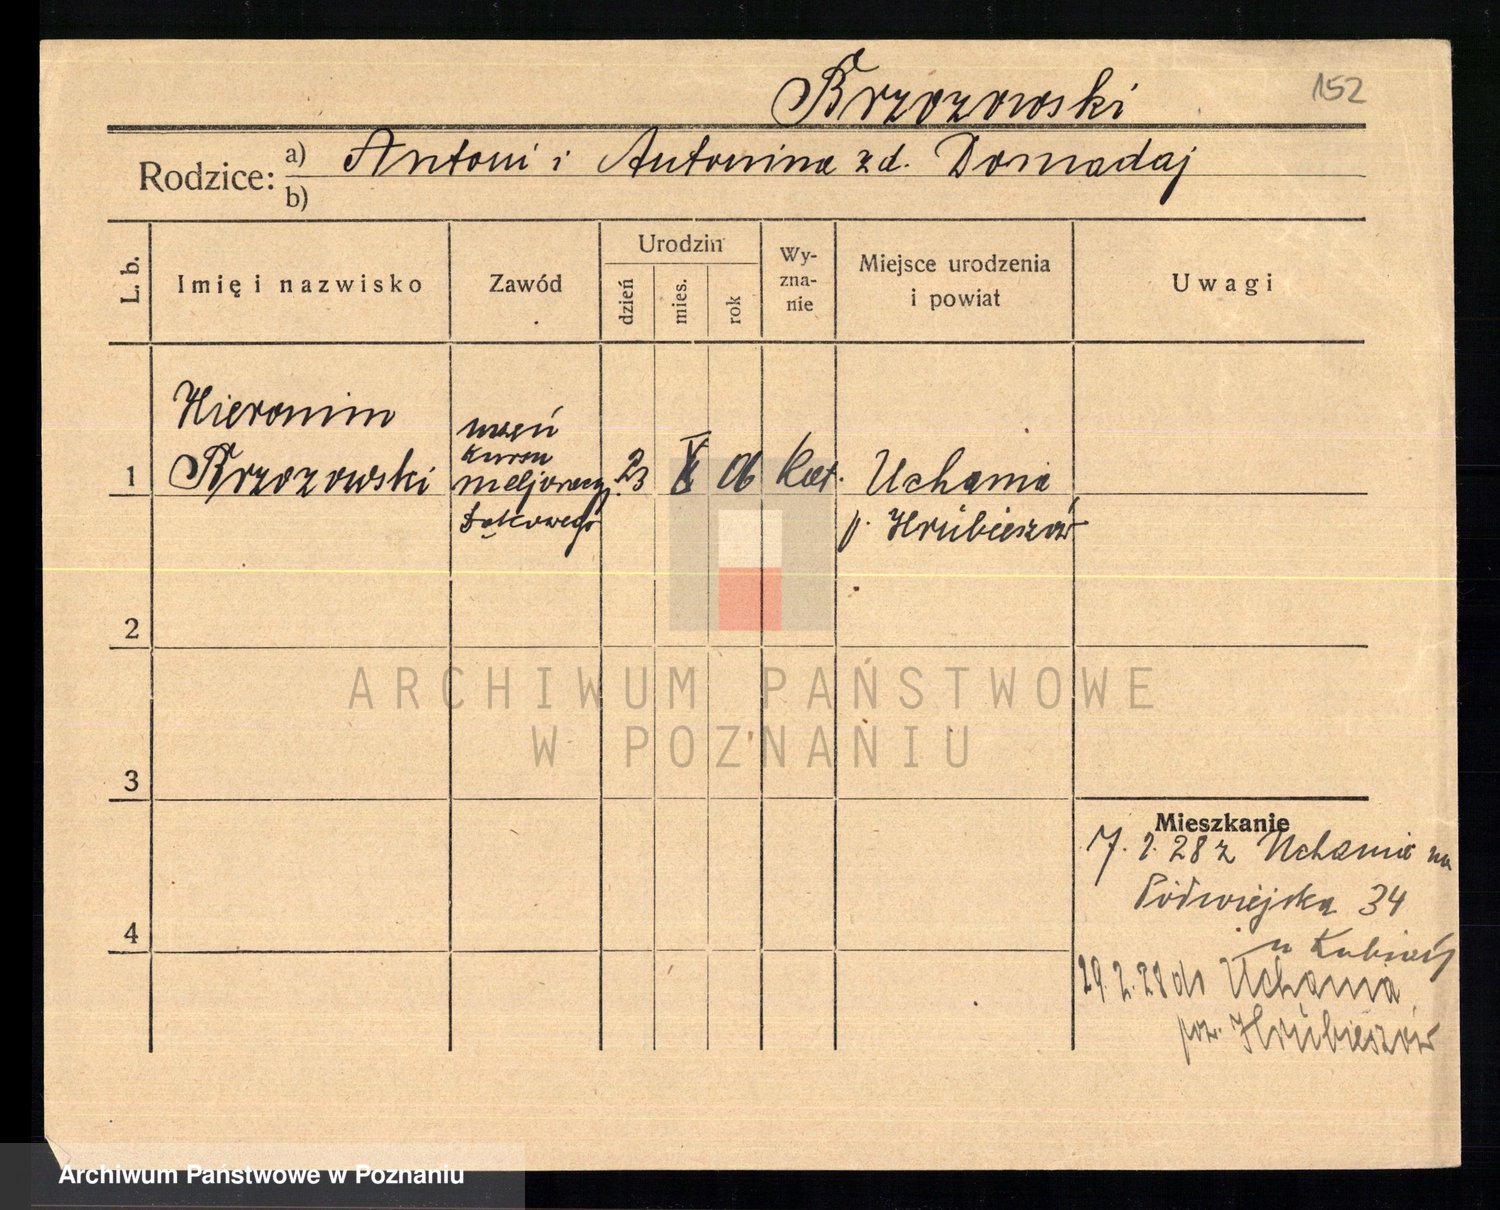 152
Brzozowski
Rodzice: a) Antoni i Antonina z d. Domadaj
b)
L. b.
Imię i nazwisko
Zawód
Urodzin
dzień
mies.
rok
Wy-
zna-
nie
Miejsce urodzenia
i powiat
Uwagi
1
Hieronim
Brzozowski
uczeń
kursu
meljoracyj.
łąkowego
23
X
06
Kat.
Uchanie
p. Hrubieszów
2
ARCHIWUM PAŃSTWOWE
W POZNANIU
3
Mieszkanie
28 z Uchanie na
34
4
29.2.28 do Uchania
pow. Hrubieszów
Archiwum Państwowe w Poznaniu